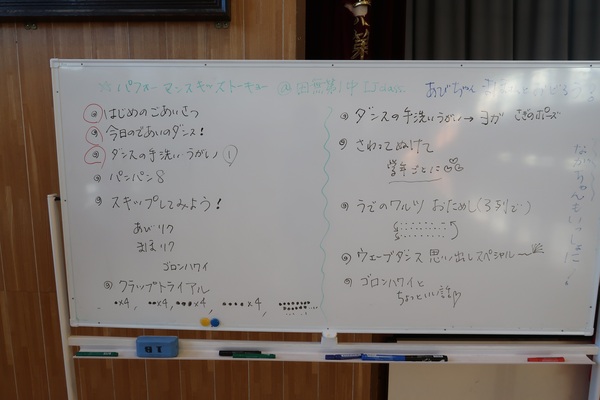 パフォーマンスキッズ・トーキョー
はじめのごあいさつ
今日のであいのダンス!
ダンスの手洗いうがい ①
パンパン8
スキップしてみよう!
あびリク
まほリク
ゴロンハワイ
クラップトライアル
●×4, ●●×4, ●●●×4, ●●●●×4,
あびちゃん
ダンスの手洗いうがい→ヨガ さぎのポーズ
さわってぬけて
学年ごとに
うでのワルツ おためし(3列で)
ウェーブダンス 思い出しスペシャル〜
ゴロンハワイと
ちょっといい話
なかちゃんもいっしょに!